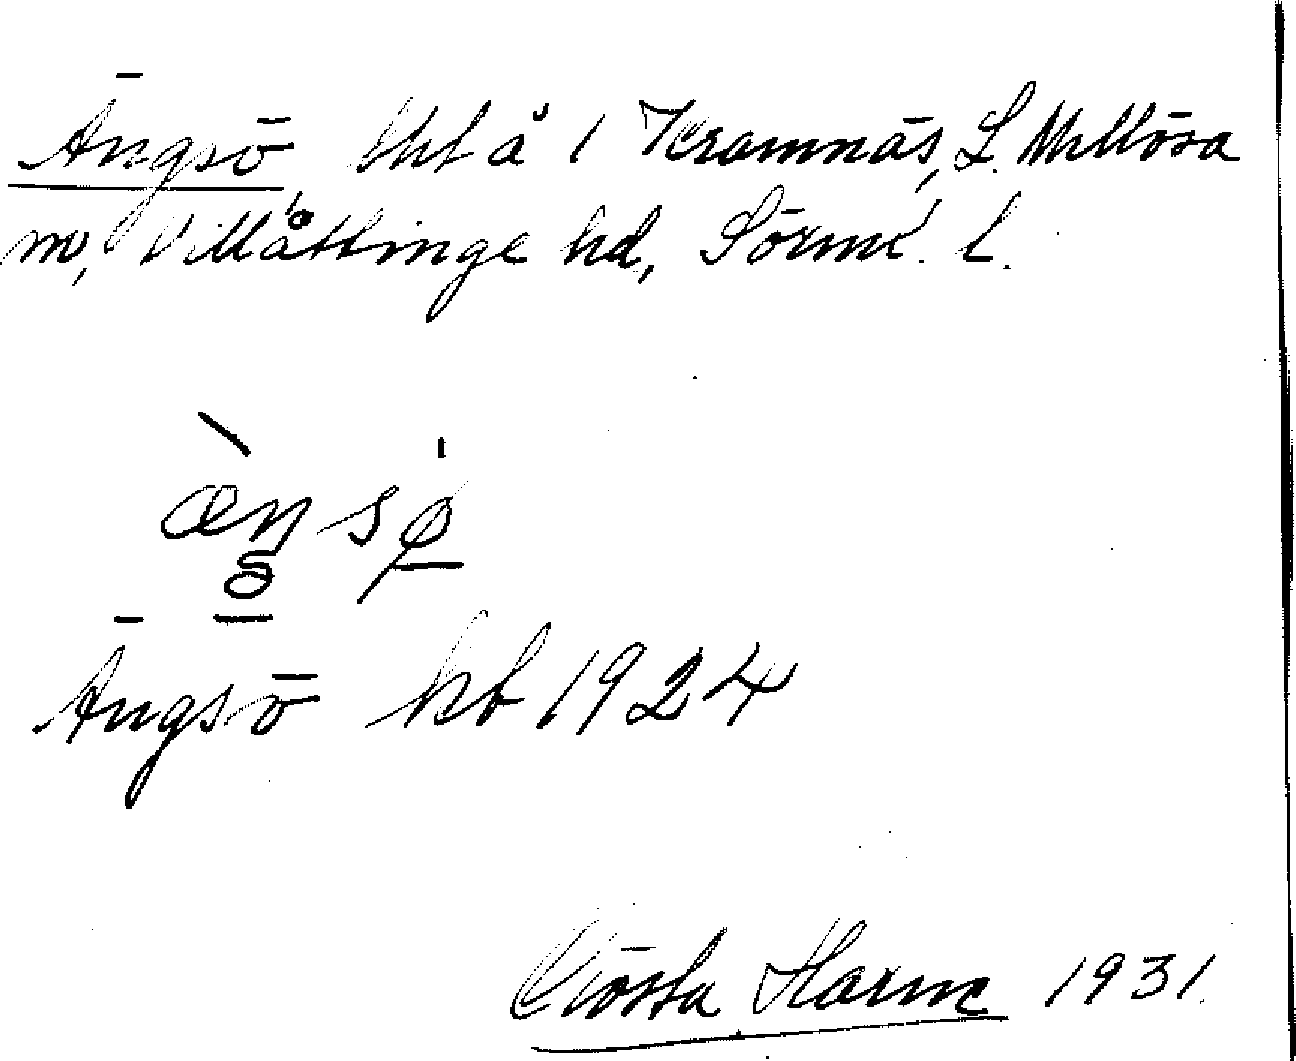 Ängsö, tht å 1 Kramnäs, L. Mellösa
sn, Villåttinge hd, Sörml. l.
æŋsø
Ängsö kb 1924
Gösta Harne 1931.